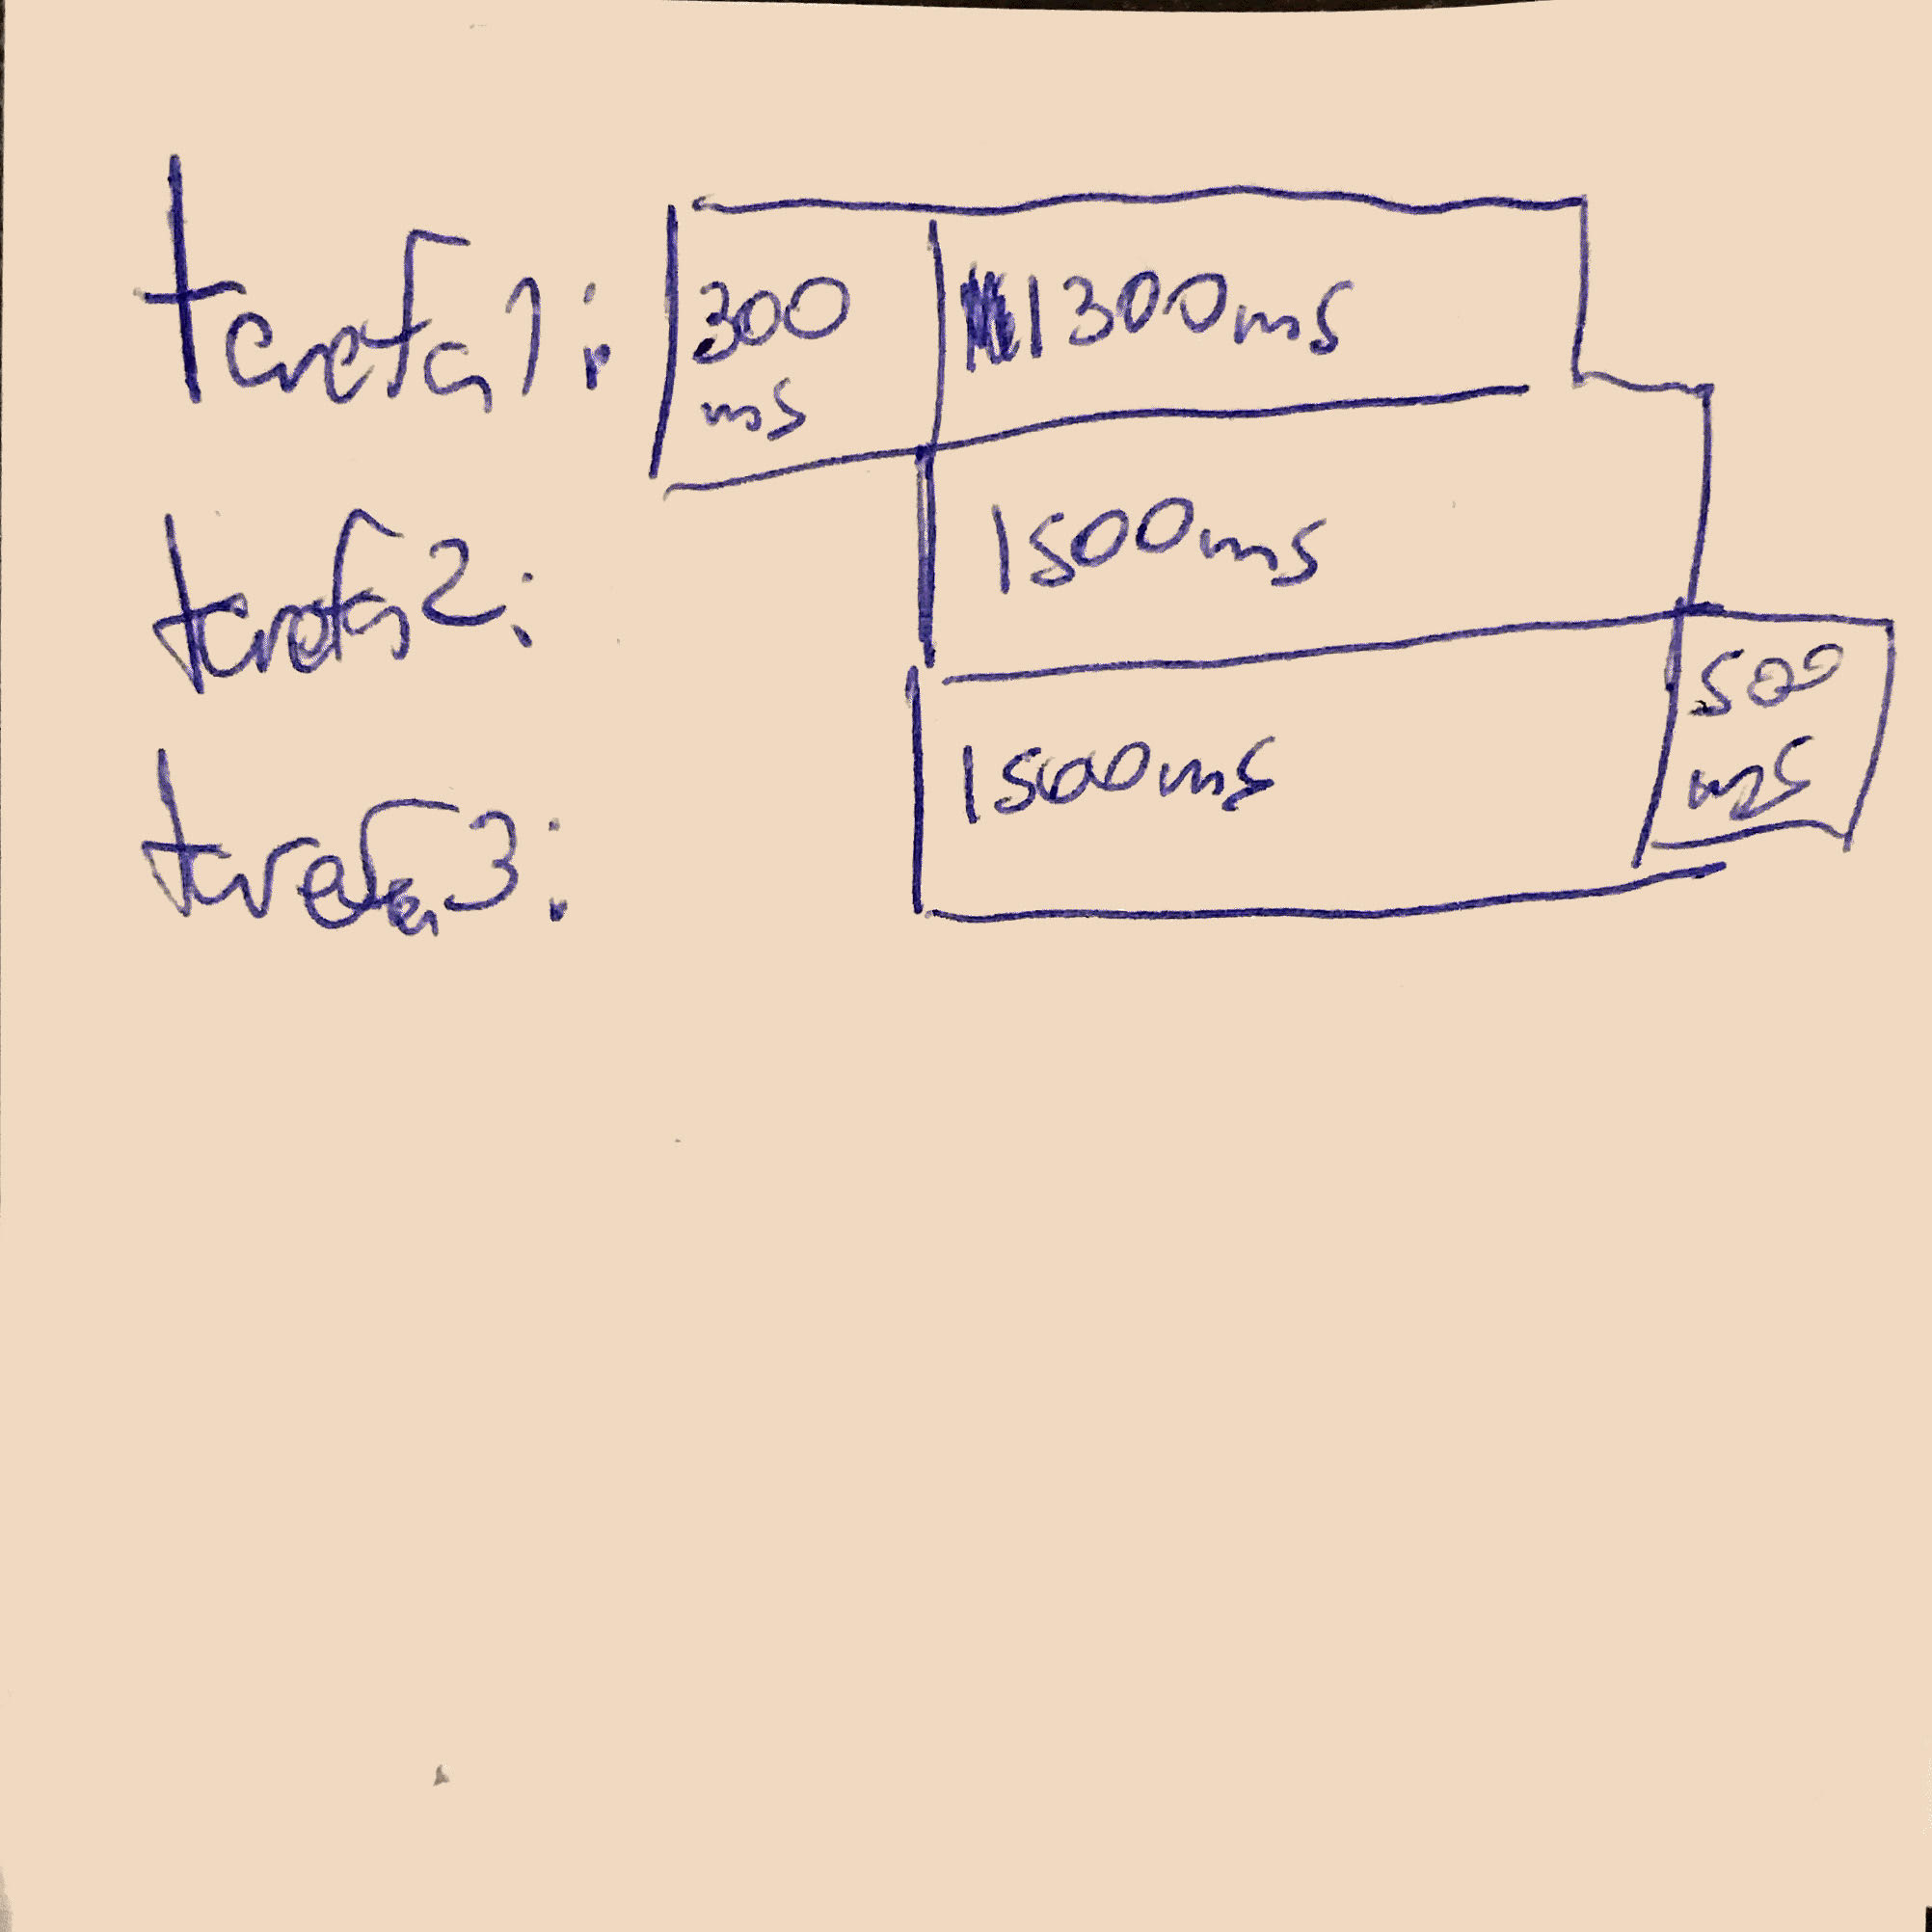 tarefa 1: 300 ms 1300ms
tarefa 2: 1500ms
tarefa 3: 1500ms 500 ms